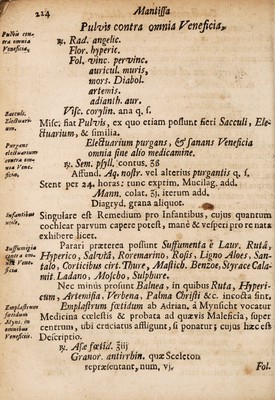 224 Mantissa
Pulvis contra omnia Veneficia.
Pulvis contra omnia Veneficia.
℞. Rad. angelic.
Flor. hyperic.
Fol. vinc. pervinc.
auricul. muris,
mors. Diabol.
artemis.
adianth. aur.
Visc. corylin. ana q. s.
Saccul. Electuarium.
Misc. fiat Pulvis, ex quo etiam possunt fieri Sacculi, Ele-
ctuarium, & similia.
Purgans electuarium contra omnia Veneficia.
Electuarium purgans, & sanans Veneficia
omnia sine alio medicamine.
℞. Sem. psyll. contus, ℥ß
Affund. Aq. nostr. vel alterius purgantis q. s.
Stent per 24. horas: tunc exprim. Mucilag. add.
Mann. colat, ℥j, iterum add.
Diagryd. grana aliquot.
Infantibus
Singulare est Remedium pro Infantibus, cujus quantum
cochlear parvum capere potest, manè & vesperi pro re nata
exhibere licet.
Suffumigia contra omnia Veneficia.
Parari præterea possunt Suffumenta è Laur. Rutâ,
Hyperico, Salviâ, Roremarino, Rosis, Ligno Aloes, San-
talo, Corticibus citri. Thure, Mastich. Benzoe, Styrace Cala-
mit. Ladano, Moscho, Sulphure.
Nec minùs prosunt Balnea, in quibus Ruta, Hyperi-
cum, Artemisia, Verbena, Palma Christi &c. incocta sint.
Emplastrum fœtidum Myns. in omnibus Veneficiis.
Emplastrum fœtidum ab Adrian. á Mynsicht vocatur
Medicina cœlestis & probata ad quævis Maleficia, super
centrum, ubi cruciatus affligunt, si ponatur; cujus hæc est
Descriptio.
℞. Asæ fœtid. ℥iij
Granor. antirrhin. quæ Sceleton
repræsentant, num, vj.
Fol.